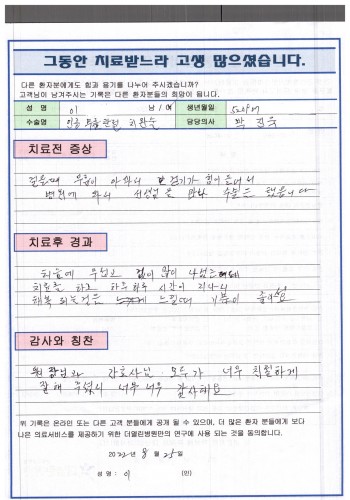 그동안 치료받느라 고생 많으셨습니다.
다른 환자분에게도 힘과 용기를 나누어 주시겠습니까?
고객님이 남겨주시는 기록은 다른 환자들의 희망이 됩니다.
성 명 이 남 / 여 생년월일
수술명 인공 무릎 관절 치환술 담당의사
치료전 증상
걸을때 무릎이 아파서 걷기가 힘이 들어서
병원에 와서 선생님을 만나 수술을 했습니다
치료후 경과
처음에 무섭고 겁이 많이 났었는데
치료를 하고 하루하루 시간이 지나서
회복 되는것을 느낄때 기분이 좋아요
감사와 칭찬
원장님과 간호사님 모두가 너무 친절하게
잘해 주셔서 너무 너무 감사해요
위 기록은 온라인 또는 다른 고객 분들에게 공개 될 수 있으며, 더 많은 환자 분들에게 보다
나은 의료서비스를 제공하기 위한 더열린병원만의 연구에 사용 되는 것을 동의합니다.
2022년 8월 25일
성 명 : 이 (인)